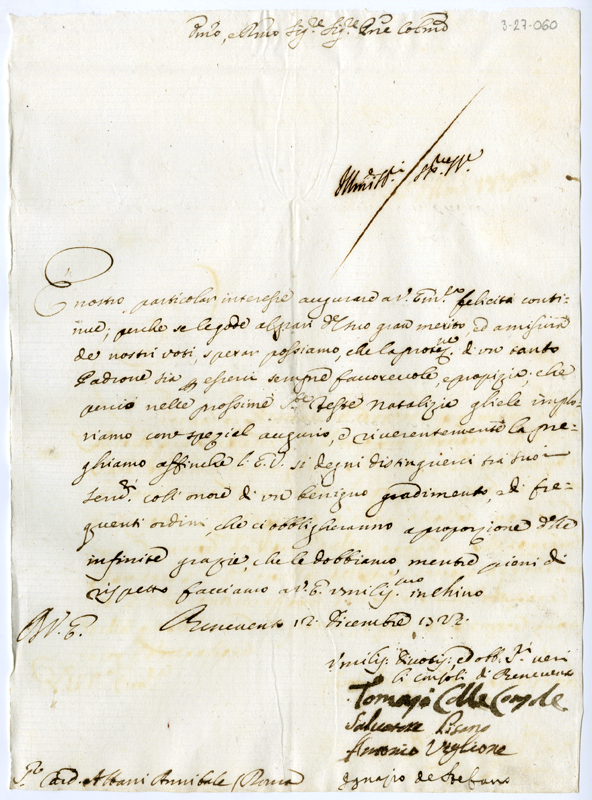 3-27-060
Em̃o, e Rmo Sig.re Sig.re Pne Colmo
È nostro particolar interesse augurare a V. Em.za felicità conti-
nue; perche se le gode al pari del suo gran merito, ed a misura
de' nostri voti, sperar possiamo, che la protez.ne di un tanto
Padrone sia per esserci sempre favorevole, e propizia, che
perciò nelle prossime S.te feste Natalizie gliele implo-
riamo con spezial augurio, e riverentemente la pre-
ghiamo affinche l'E.V. si degni distinguerci tra suoi
Serv.ri coll'onore di un benigno gradimento, e di fre-
quenti ordini, che ci obbligheranno a proporzione delle
infinite grazie, che le dobbiamo, mentre pieni di
rispetto facciamo a V.E. umiliss.mo inchino
D.V.E. Benevento 12. Dicembre 1722.
Umiliss: Divotiss: ed obb. S.ri veri
Li Consoli di Benevento
Tomaso
Salvatore Pisano
Antonio Viglione
Ignazio de Stefano
Card. Albani Annibale / Roma